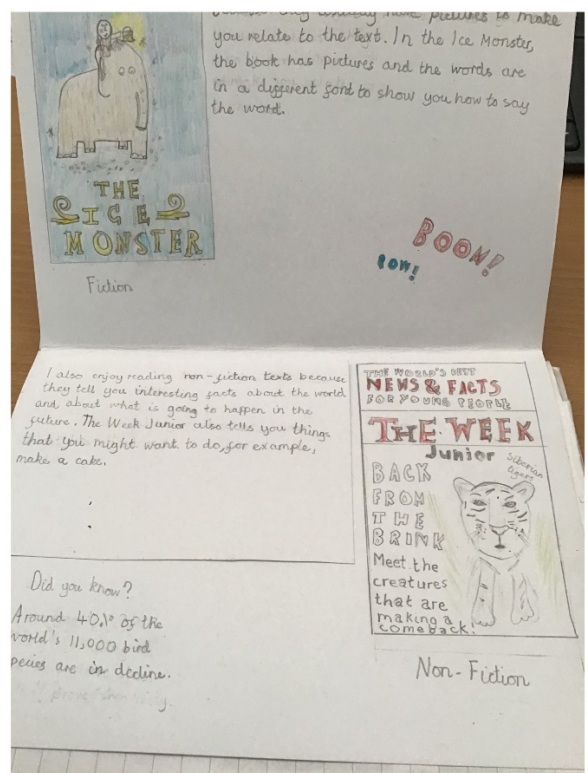 usually have pictures to make
you relate to the text. In the Ice Monster,
the book has pictures and the words are
in a different font to show you how to say
the word.
THE
ICE
MONSTER
Fiction
BOOM!
POW!
I also enjoy reading non-fiction texts because
they tell you interesting facts about the world
and about what is going to happen in the
future. The Week Junior also tells you things
that you might want to do, for example,
make a cake.
THE WORLD'S BEST
NEWS & FACTS
FOR YOUNG PEOPLE
THE WEEK
Junior
Siberian
tigers
BACK
FROM
THE
BRINK
Meet the
creatures
that are
making a
comeback!
Non-Fiction
Did you know?
Around 40% of the
world's 11,000 bird
pecies are in decline.